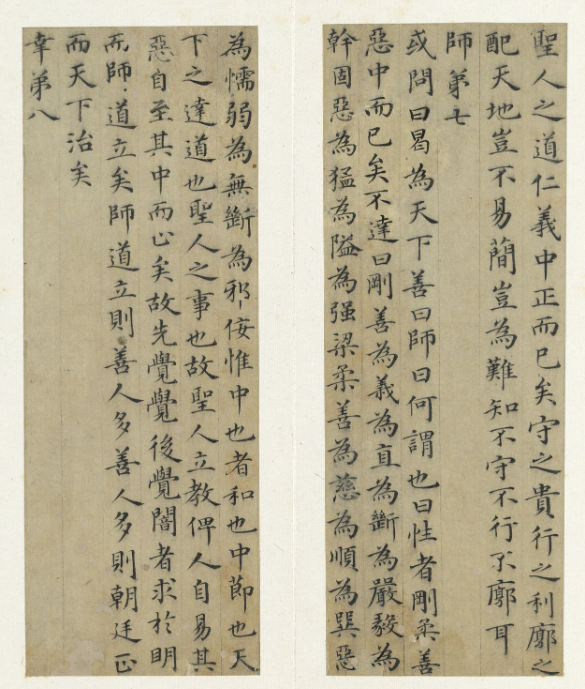 聖人之道仁義中正而已矣守之貴行之利廓之
配天地豈不易簡豈為難知不守不行不廓耳
師第七
或問曰曷為天下善曰師曰何謂也曰性者剛柔善
惡中而已矣不達曰剛善為義為直為斷為嚴毅為
幹固惡為猛為隘為强梁柔善為慈為順為巽惡
為懦弱為無斷為邪佞惟中也者和也中節也天
下之達道也聖人之事也故聖人立教俾人自易其
惡自至其中而止矣故先覺覺後覺闇者求於明
而師道立矣師道立則善人多善人多則朝廷正
而天下治矣
幸第八